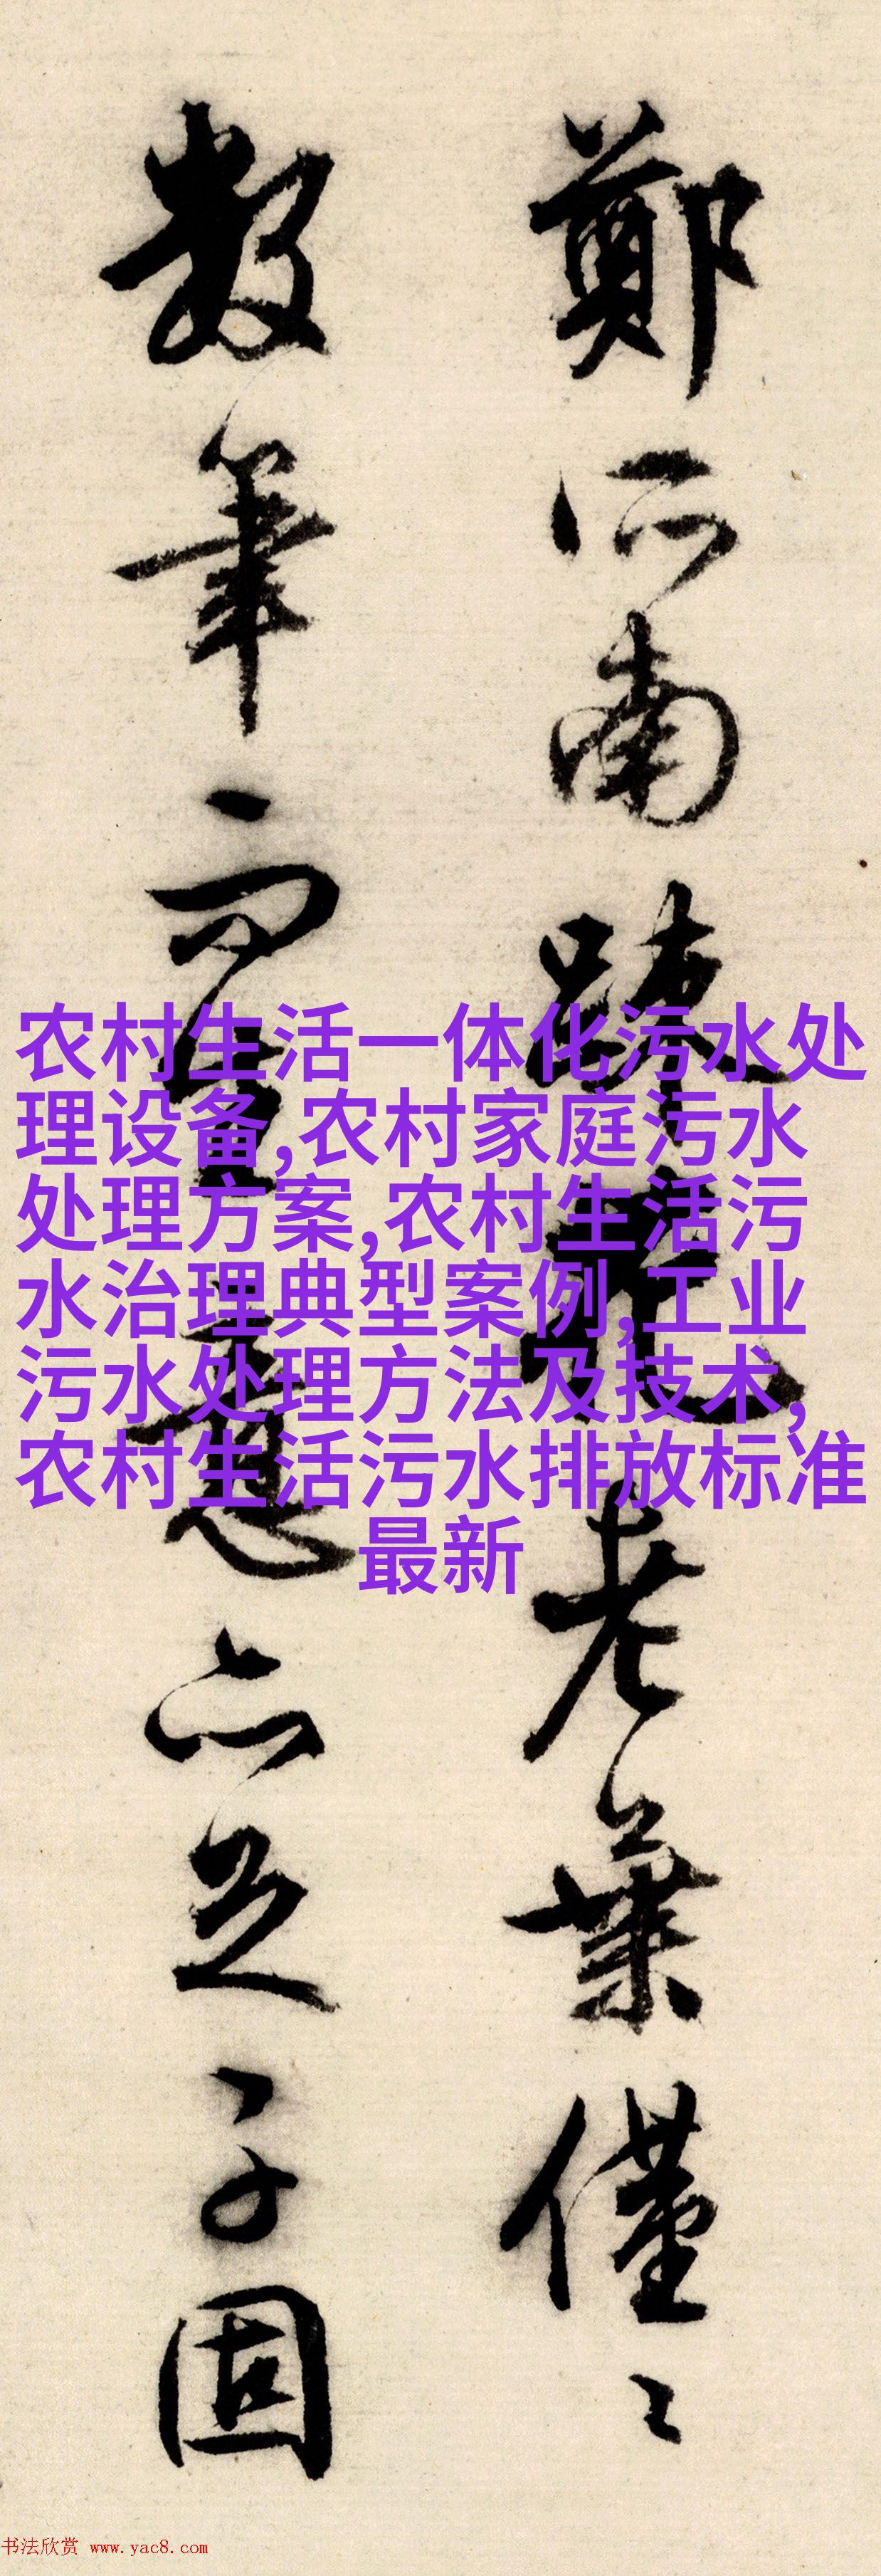 鄭所南疎花老葉僅〻
數筆而生意亦足子固
农村生活一体化污水处
理设备,农村家庭污水
处理方案,农村生活污
水治理典型案例,工业
污水处理方法及技术,
农村生活污水排放标准
最新
书法欣赏 www.yac8.com